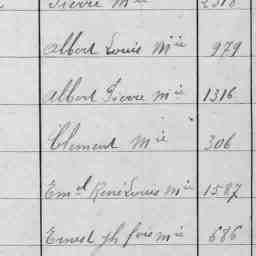 Pierre Mie
Albert Louis Mie 979
Albert Pierre Mie 1316
Clement Mie 306
Emel René Louis Mie 1587
Ernest Jh fois Mie 686